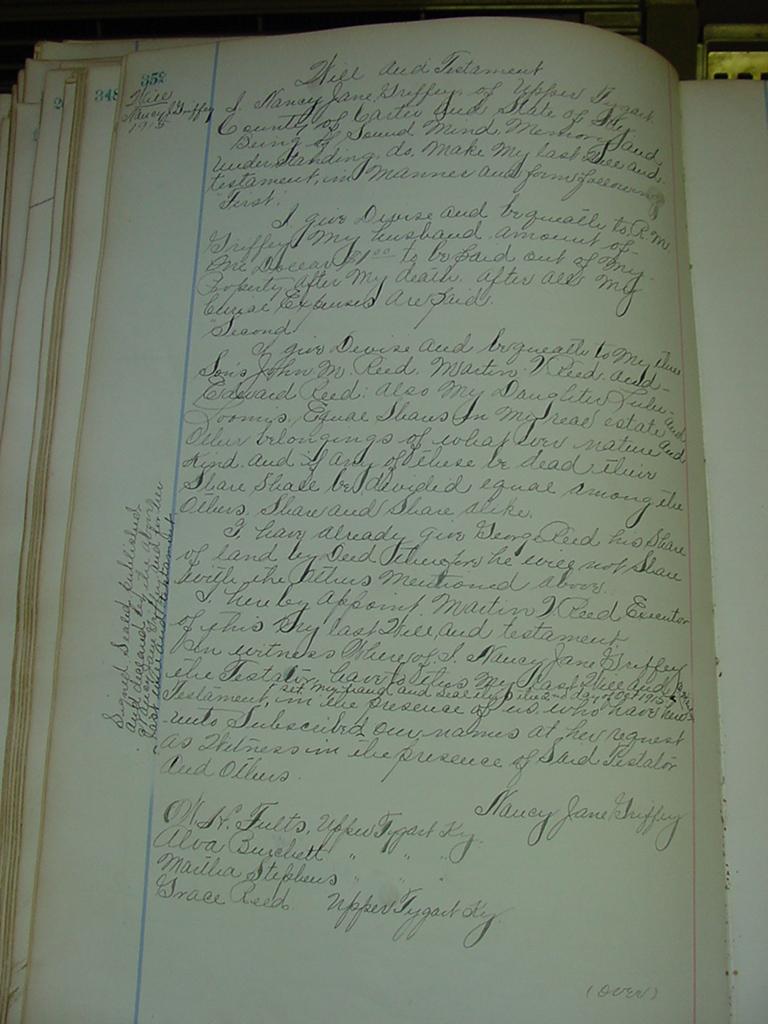 352
348
2
Will
Nancy J Griffey
1915
Will and Testament
I Nancy Jane Griffey, of Upper Tygart
County of Carter and State of Ky.
Being of Sound Mind, Memory and
Understanding, do, Make My last Will and
testament, in Manner and form following
First.
I give Devise and bequeath to R. M.
Griffey My husband amount of
One Dollar $1.00 to be Paid out of My
Property after My death. After all My
Expenses are Paid.
Second
I give Devise and bequeath to My three
Sons John M. Reed. Martin V Reed. and
Edward Reed: also My Daughter Lulu
Loomis, Equal Shares in My real estate and
Other belongings of what ever nature and
Kind. and if any of these be dead their
Share Shall be divided equal among the
Others, Share and Share alike.
I have already give George Reed his Share
of land by Deed therefore he will not Share
with the others Mentioned above.
I hereby appoint Martin V Reed Executor
of this My last Will and testament
In witness Where of I. Nancy Jane Griffey
the Testator, have to this My Last Will and
set my hand and seal this day of Oct 1915
Testament, in the presence of us who have here
unto Subscribed our names at her request
as Witness in the presence of Said Testator
and Others.
Nancy Jane Griffey
W. H. Fults, Upper Tygart Ky.
Alva Burchett " " "
Martha Stephens " " "
Grace Reed Upper Tygart Ky.
Signed Sealed published
and declared by the above
Nancy Jane Griffey as and for her
last will and testament
(over)